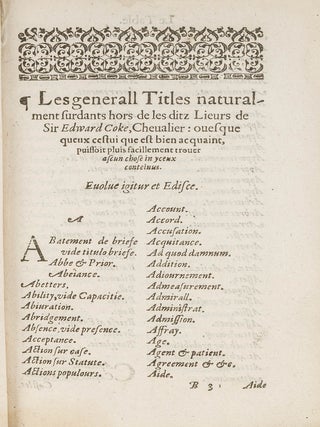 ¶ Les generall Titles natural-
ment surdants hors de les ditz Lieurs de
Sir Edward Coke, Cheualier : ouesque
queux cestui que est bien acquaint,
puissoit pluis facillement trouer
ascun chose in yceux
conteinus.
Euolue igitur et Edisce.
A
ABatement de briefe
vide titulo briefe.
Abbe & Prior.
Abeiance.
Abetters,
Ability, vide Capacitie.
Abiuration.
Abridgement.
Absence vide presence.
Acceptance.
Action sur case.
Action sur Statute.
Actions populours.
Account.
Accord.
Accusation.
Acquitance.
Ad quod damnum.
Addition.
Adiournement.
Admeasurement.
Admirall.
Administrat.
Admission.
Affray.
Age.
Agent & patient.
Agreement & &c.
Aide.
B 3 Aide